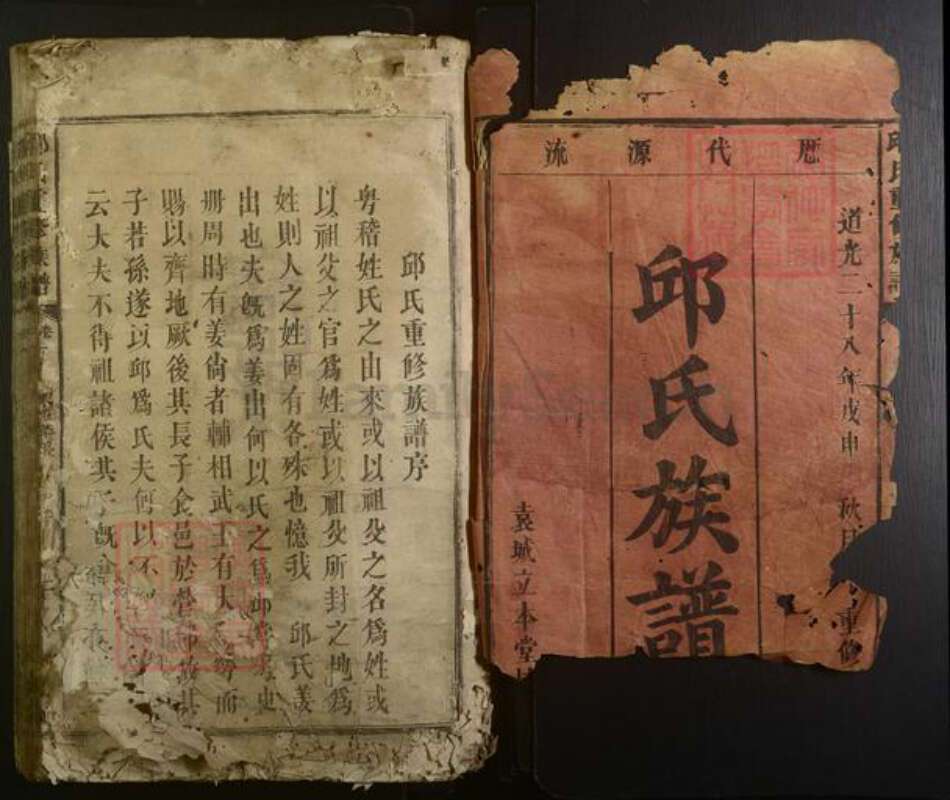 厯代源流
道光二十八年戊申 秋 重修
邱氏族譜
袁城立本堂
邱氏重修族譜
邱氏重修族譜序
粤稽姓氏之由來或以祖父之名爲姓或
以祖父之官爲姓或以祖父所封之地爲
姓則人之姓固有各殊也憶我 邱氏姜
出也夫旣爲姜出何以氏之爲邱 史
册周時有姜尙者輔相武王有大 而
賜以齊地厥後其長子食邑於營 其
子若孫遂以邱爲氏夫何以不
云大夫不得祖諸侯其子旣
氏重修族譜